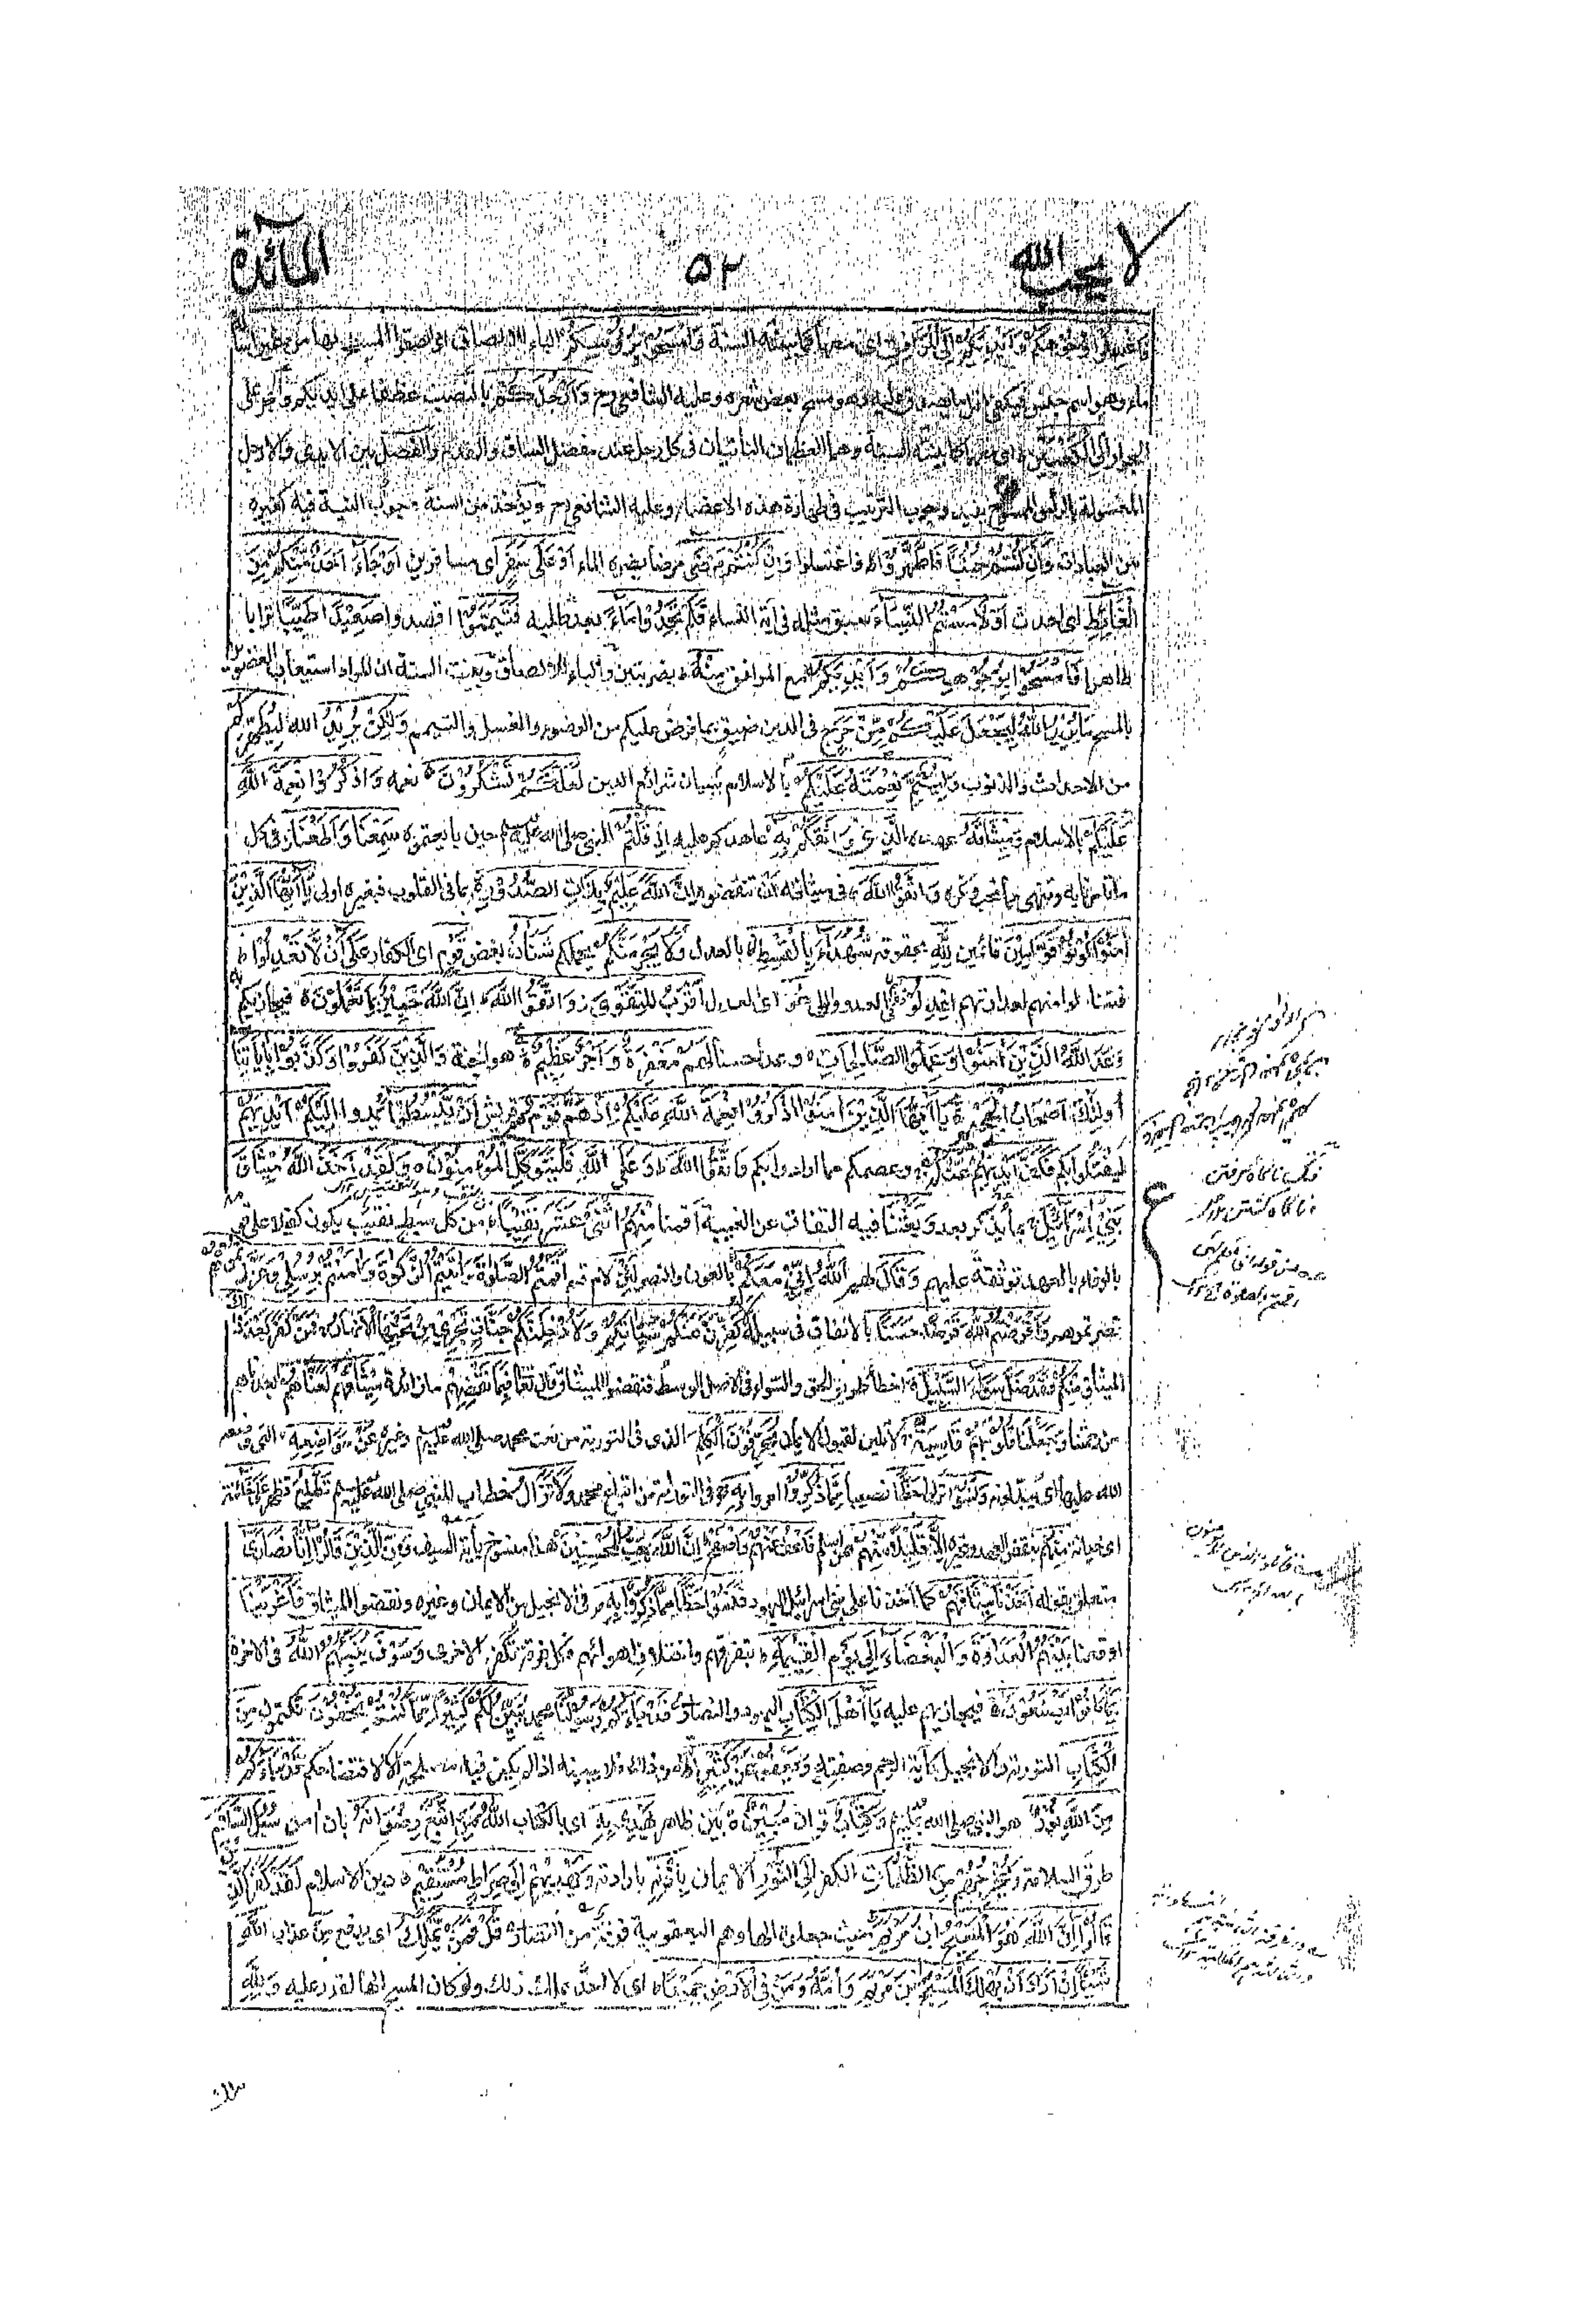 لا يحب الله
۵۲
المائدة
فَاغْسِلُوْا وُجُوْهَكُمْ وَاَيْدِيَكُمْ اِلَى الْمَرَافِقِ اى معها كما بينته السنة وَامْسَحُوْا بِرُءُوْسِكُمْ الباء للالصاق اى الصقوا المسح بها من غير اسالة
ماء وهو اسم جنس فيكفى اقل ما يصدق عليه وهو مسح بعض شعره وعليه الشافعى رح وَاَرْجُلَكُمْ بالنصب عطفا على ايديكم والجر على
الجوار اِلَى الْكَعْبَيْنِ اى معهما كما بينته السنة وهما العظمان الناتيان فى كل رجل عند مفصل الساق والقدم والفصل بين الايدى والارجل
المغسولة بالراس الممسوح يفيد وجوب الترتيب فى طهارة هذه الاعضاء وعليه الشافعى رح ويؤخذ من السنة وجوب النية فيه كغيره
من العبادات وَاِنْ كُنْتُمْ جُنُبًا فَاطَّهَّرُوْا فاغتسلوا وَاِنْ كُنْتُمْ مَرْضٰى مرضا يضره الماء اَوْ عَلٰى سَفَرٍ اى مسافرين اَوْ جَاءَ اَحَدٌ مِّنْكُمْ مِّنَ
الْغَائِطِ اى احدث اَوْ لٰمَسْتُمُ النِّسَاءَ سبق مثله فى اٰية النساء فَلَمْ تَجِدُوْا مَاءً بعد طلبه فَتَيَمَّمُوْا اقصدوا صَعِيْدًا طَيِّبًا ترابا
طاهرا فَامْسَحُوْا بِوُجُوْهِكُمْ وَاَيْدِيْكُمْ مع المرافق مِنْهُ بضربتين والباء للالصاق وبينت السنة ان المراد استيعاب العضوين
بالمسح مَا يُرِيْدُ اللّٰهُ لِيَجْعَلَ عَلَيْكُمْ مِّنْ حَرَجٍ فى الدين ضيق بما فرض عليكم من الوضوء والغسل والتيمم وَلٰكِنْ يُّرِيْدُ اللّٰهُ لِيُطَهِّرَكُمْ
من الاحداث والذنوب وَلِيُتِمَّ نِعْمَتَهٗ عَلَيْكُمْ بالاسلام ببيان شرائع الدين لَعَلَّكُمْ تَشْكُرُوْنَ نعمه وَاذْكُرُوْا نِعْمَةَ اللّٰهِ
عَلَيْكُمْ بالاسلام وَمِيْثَاقَهُ عهده الَّذِىْ وَاثَقَكُمْ بِهٖ عاهدكم عليه اِذْ قُلْتُمْ للنبى صلى الله عليه وسلم حين بايعتموه سَمِعْنَا وَاَطَعْنَا فى كل
ما تامر به وتنهى مما نحب ونكره وَاتَّقُوا اللّٰهَ فى ميثاقه ان تنقضوه اِنَّ اللّٰهَ عَلِيْمٌ بِذَاتِ الصُّدُوْرِ بما فى القلوب فبغيره اولى يٰاَيُّهَا الَّذِيْنَ
اٰمَنُوْا كُوْنُوْا قَوَّامِيْنَ قائمين لِلّٰهِ بحقوقه شُهَدَاءَ بِالْقِسْطِ بالعدل وَلَا يَجْرِمَنَّكُمْ يحملنكم شَنَاٰنُ بغض قَوْمٍ اى الكفار عَلٰى اَنْ لَّا تَعْدِلُوْا
فتنالوا منهم لعداوتهم اِعْدِلُوْا فى العدو والولى هُوَ اى العدل اَقْرَبُ لِلتَّقْوٰى وَاتَّقُوا اللّٰهَ اِنَّ اللّٰهَ خَبِيْرٌ بِمَا تَعْمَلُوْنَ فيجازيكم به
وَعَدَ اللّٰهُ الَّذِيْنَ اٰمَنُوْا وَعَمِلُوا الصَّالِحَاتِ وعدا حسنا لَهُمْ مَّغْفِرَةٌ وَّاَجْرٌ عَظِيْمٌ هو الجنة وَالَّذِيْنَ كَفَرُوْا وَكَذَّبُوْا بِاٰيَاتِنَا
اُولٰئِكَ اَصْحَابُ الْجَحِيْمِ يٰاَيُّهَا الَّذِيْنَ اٰمَنُوا اذْكُرُوْا نِعْمَةَ اللّٰهِ عَلَيْكُمْ اِذْ هَمَّ قَوْمٌ هم قريش اَنْ يَّبْسُطُوْا يمدوا اِلَيْكُمْ اَيْدِيَهُمْ
ليفتكوا بكم فَكَفَّ اَيْدِيَهُمْ عَنْكُمْ وعصمكم مما ارادوا بكم وَاتَّقُوا اللّٰهَ وَعَلَى اللّٰهِ فَلْيَتَوَكَّلِ الْمُؤْمِنُوْنَ وَلَقَدْ اَخَذَ اللّٰهُ مِيْثَاقَ
بَنِىْ اِسْرَائِيْلَ بما يذكر بعد وَبَعَثْنَا فيه التفات عن الغيبة اقمنا مِنْهُمُ اثْنَىْ عَشَرَ نَقِيْبًا من كل سبط نقيب يكون كفيلا على قومه
بالوفاء بالعهد توثقة عليهم وَقَالَ لهم اللّٰهُ اِنِّىْ مَعَكُمْ بالعون والنصر لَئِنْ لام قسم اَقَمْتُمُ الصَّلٰوةَ وَاٰتَيْتُمُ الزَّكٰوةَ وَاٰمَنْتُمْ بِرُسُلِىْ وَعَزَّرْتُمُوْهُمْ
نصرتموهم وَاَقْرَضْتُمُ اللّٰهَ قَرْضًا حَسَنًا بالانفاق فى سبيله لَّاُكَفِّرَنَّ عَنْكُمْ سَيِّاٰتِكُمْ وَلَاُدْخِلَنَّكُمْ جَنَّاتٍ تَجْرِىْ مِنْ تَحْتِهَا الْاَنْهَارُ فَمَنْ كَفَرَ بَعْدَ ذٰلِكَ
الميثاق مِنْكُمْ فَقَدْ ضَلَّ سَوَاءَ السَّبِيْلِ اخطأ طريق الحق والسواء فى الاصل الوسط فنقضوا الميثاق قال تعالى فَبِمَا نَقْضِهِمْ ما زائدة مِيْثَاقَهُمْ لَعَنَّاهُمْ ابعدناهم
من رحمتنا وَجَعَلْنَا قُلُوْبَهُمْ قَاسِيَةً لا تلين لقبول الايمان يُحَرِّفُوْنَ الْكَلِمَ الذى فى التورية من نعت محمد صلى الله عليه وسلم وغيره عَنْ مَّوَاضِعِهٖ التى وضعه
الله عليها اى يبدلونه وَنَسُوْا تركوا حَظًّا نصيبا مِّمَّا ذُكِّرُوْا امروا بِهٖ فى التورية من اتباع محمد وَلَا تَزَالُ خطاب للنبى صلى الله عليه وسلم تَطَّلِعُ تظهر عَلٰى خَائِنَةٍ
اى خيانة مِنْهُمْ بنقض العهد وغيره اِلَّا قَلِيْلًا مِّنْهُمْ ممن اسلم فَاعْفُ عَنْهُمْ وَاصْفَحْ اِنَّ اللّٰهَ يُحِبُّ الْمُحْسِنِيْنَ هذا منسوخ باٰية السيف وَمِنَ الَّذِيْنَ قَالُوْا اِنَّا نَصَارٰى
متعلق بقوله اَخَذْنَا مِيْثَاقَهُمْ كما اخذنا على بنى اسرائيل اليهود فَنَسُوْا حَظًّا مِّمَّا ذُكِّرُوْا بِهٖ فى الانجيل من الايمان وغيره ونقضوا الميثاق فَاَغْرَيْنَا
اوقعنا بَيْنَهُمُ الْعَدَاوَةَ وَالْبَغْضَاءَ اِلٰى يَوْمِ الْقِيٰمَةِ بتفرقهم واختلاف اهوائهم فكل فرقة تكفر الاخرى وَسَوْفَ يُنَبِّئُهُمُ اللّٰهُ فى الاخرة
بِمَا كَانُوْا يَصْنَعُوْنَ فيجازيهم عليه يٰاَهْلَ الْكِتَابِ اليهود والنصارى قَدْ جَاءَكُمْ رَسُوْلُنَا محمد يُبَيِّنُ لَكُمْ كَثِيْرًا مِّمَّا كُنْتُمْ تُخْفُوْنَ تكتمون مِنَ
الْكِتَابِ التورية والانجيل كاٰية الرجم وصفته وَيَعْفُوْ عَنْ كَثِيْرٍ من ذلك فلا يبينه اذا لم يكن فيه مصلحة الا افتضاحكم قَدْ جَاءَكُمْ
مِنَ اللّٰهِ نُوْرٌ هو النبى صلى الله عليه وسلم وَكِتَابٌ قراٰن مُّبِيْنٌ بين ظاهر يَهْدِىْ بِهِ اى بالكتاب اللّٰهُ مَنِ اتَّبَعَ رِضْوَانَهٗ بان اٰمن سُبُلَ السَّلَامِ
طرق السلامة وَيُخْرِجُهُمْ مِنَ الظُّلُمَاتِ الكفر اِلَى النُّوْرِ الايمان بِاِذْنِهٖ بارادته وَيَهْدِيْهِمْ اِلٰى صِرَاطٍ مُّسْتَقِيْمٍ دين الاسلام لَقَدْ كَفَرَ الَّذِيْنَ
قَالُوْا اِنَّ اللّٰهَ هُوَ الْمَسِيْحُ ابْنُ مَرْيَمَ حيث جعلوه الها وهم اليعقوبية فرقة من النصارى قُلْ فَمَنْ يَّمْلِكُ اى يدفع مِنَ عذاب اللّٰهِ
شَيْئًا اِنْ اَرَادَ اَنْ يُّهْلِكَ الْمَسِيْحَ ابْنَ مَرْيَمَ وَاُمَّهٗ وَمَنْ فِى الْاَرْضِ جَمِيْعًا اى لا احد يملك ذلك ولو كان المسيح الها لقدر عليه وَلِلّٰهِ